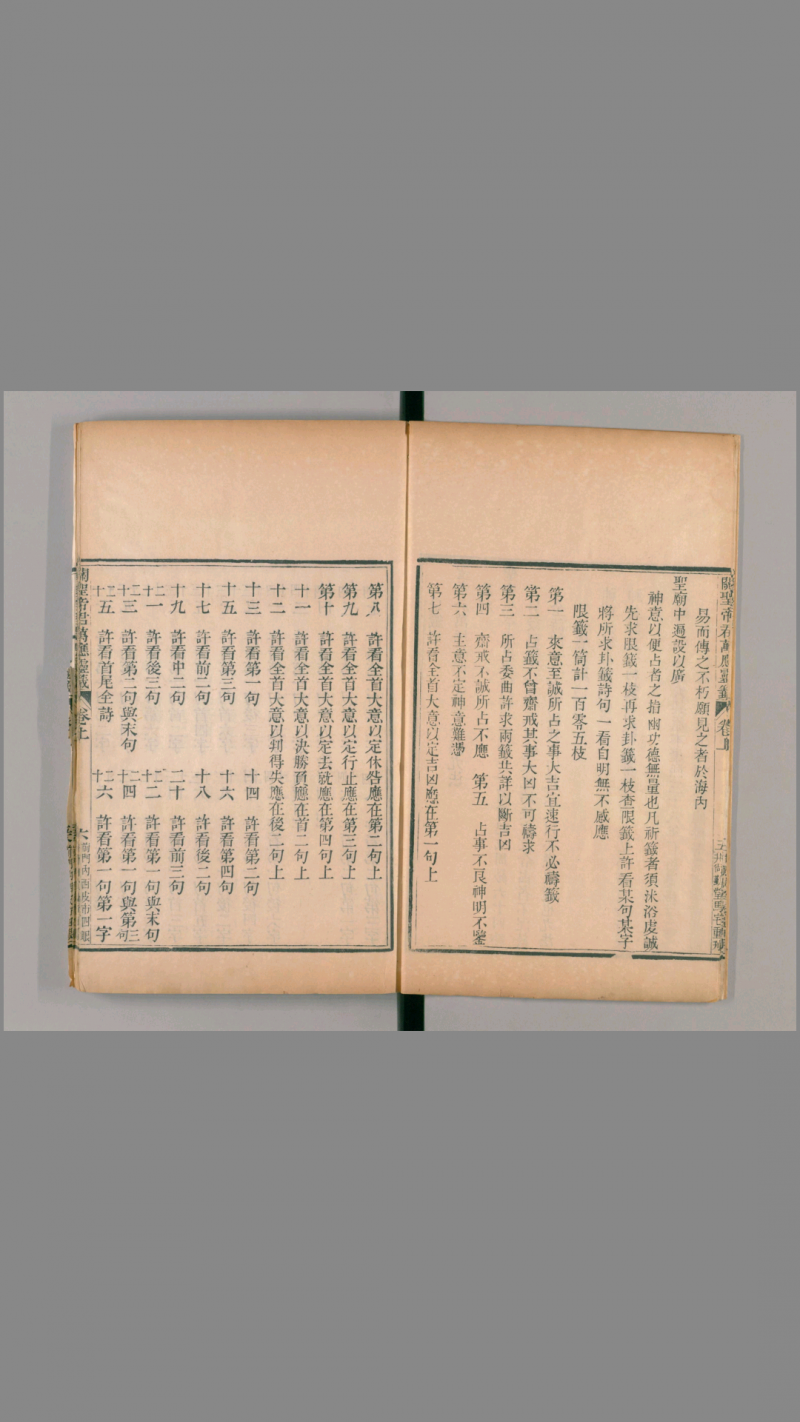 關聖帝君萬應靈籤 卷上
易而傳之不朽願見之者於海內
聖廟中遍設以廣
神意以便占者之指幽功德無量也凡祈籤者須沐浴虔誠
先求限籤一枝再求卦籤一枝查限籤上許看某句某字
將所求卦籤詩句一看自明無不感應
限籤一筒計一百零五枝
第一　來意至誠所占之事大吉宜速行不必禱籤
第二　占籤不曾齋戒其事大凶不可禱求
第三　所占委曲許求兩籤共詳以斷吉凶
第四　齋戒不誠所占不應　第五　占事不良神明不鑒
第六　主意不定神意難憑
第七　許看全首大意以定吉凶應在第一句上
第八　許看全首大意以定休咎應在第二句上
第九　許看全首大意以定行止應在第三句上
第十　許看全首大意以定去就應在第四句上
十一　許看全首大意以決勝負應在首二句上
十二　許看全首大意以判得失應在後二句上
十三　許看第一句　十四　許看第二句
十五　許看第三句　十六　許看第四句
十七　許看前二句　十八　許看後二句
十九　許看中二句　二十　許看前三句
二十一　許看後三句　二十二　許看第一句與末句
二十三　許看第二句與末句　二十四　許看第一句與第三句
二十五　許看首尾全詩　二十六　許看第一句第一字
關聖帝君萬應靈籤 卷上 六 前門內西皮市